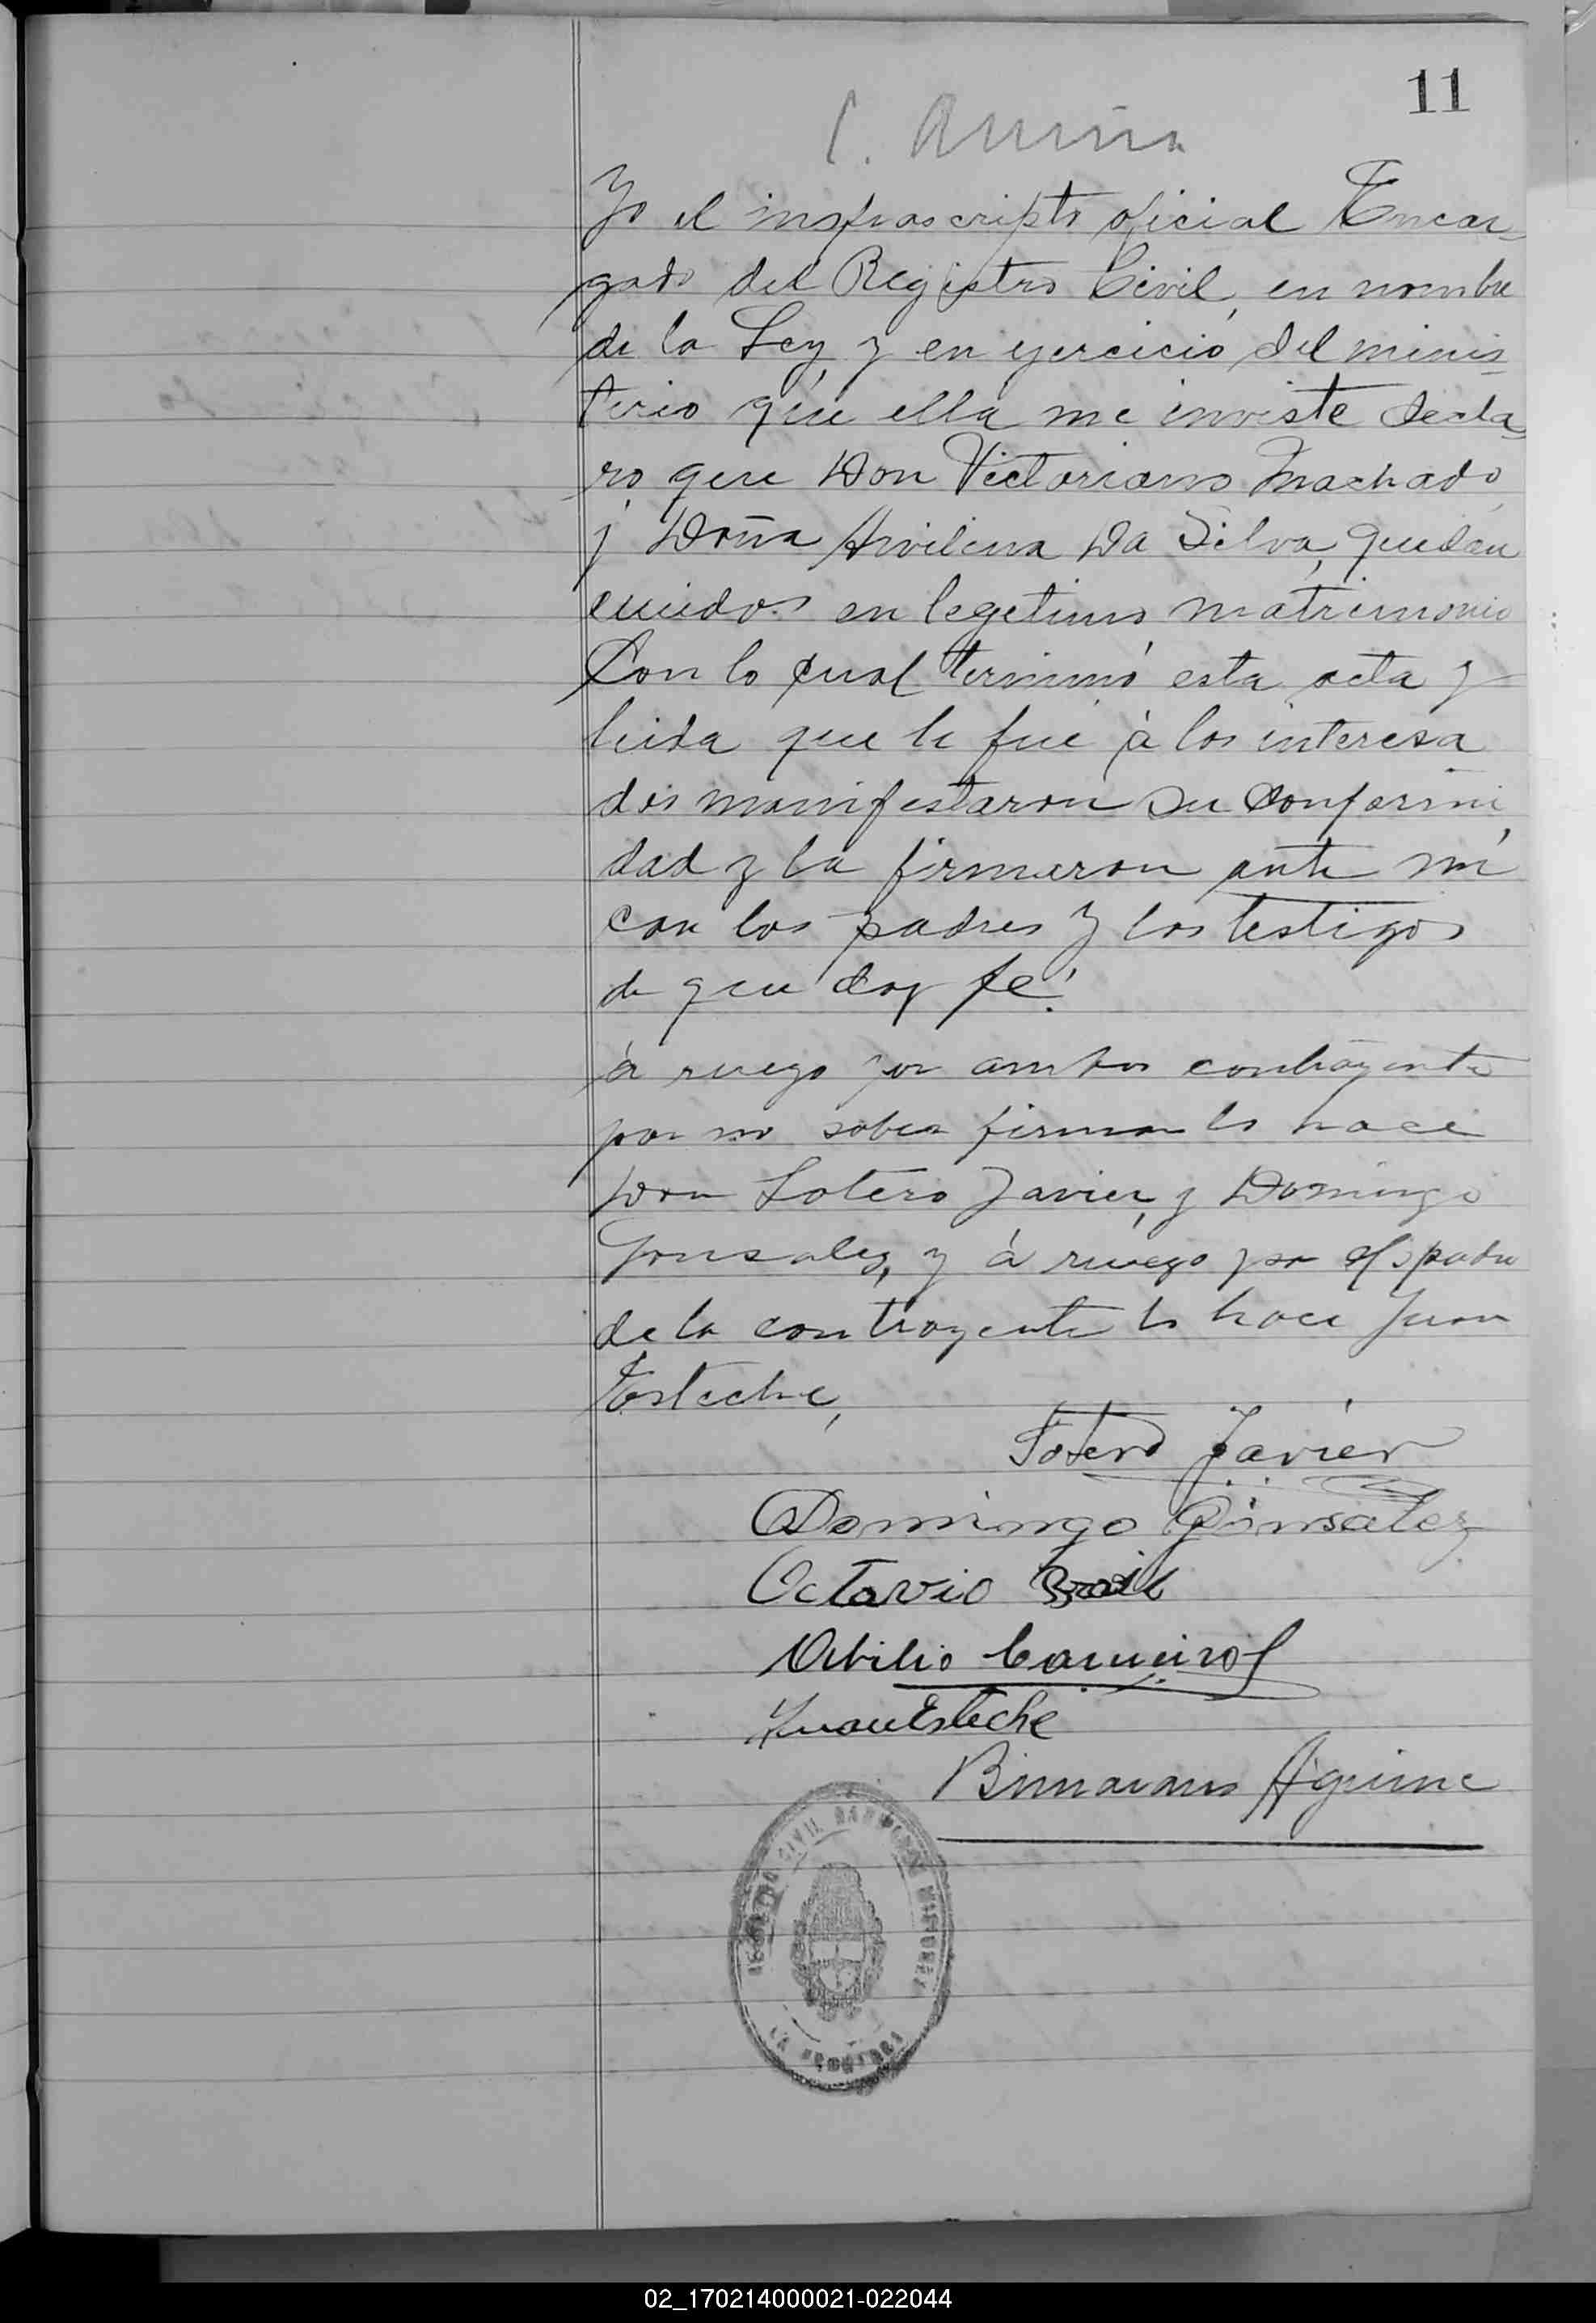 11
C.
Yo el infrascripto oficial Encar-
gado del Registro Civil, en nombre
de la Ley, y en ejercicio del minis-
terio que ella me inviste decla-
ro que Don Victoriano Machado
y Doña Avilina Da Silva, quedan
unidos en legetimo matrimonio
Con lo cual terminó esta acta y
leida que le fue à los interesa
dos manifestaron su conformi
dad y la firmaron ante mi
con los padres y los testigos
de que doy fe.
à ruego por ambos contrayente
por no saber firmar lo hace
Don Sotero Javier, y Domingo
Gonsalez, y à ruego por el padre
de la contrayente lo hace Juan
Esteche,
Sotero Javier
Domingo Gonsalez
Octavio Brasil
Abilio Carneiro
Juan Esteche
Aguirre
REGISTRO CIVIL MISIONES
LA FRONTERA
02_170214000021-022044